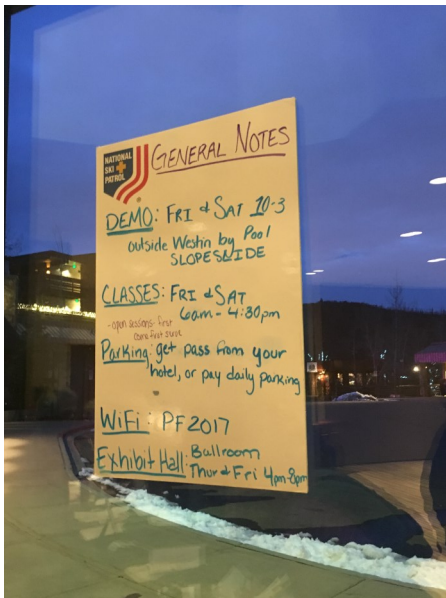 NATIONAL
SKI
PATROL
GENERAL NOTES
DEMO: FRI & SAT 10-3
outside Westin by Pool
SLOPESIDE
CLASSES: FRI & SAT
6am - 4:30pm
-open sessions- first
come first serve
Parking: get pass from your
hotel, or pay daily parking
WiFi: PF2017
Exhibit Hall: Ballroom
Thur & Fri 4pm-8pm